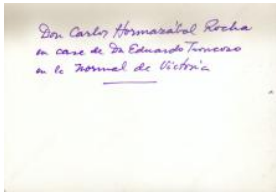 Don Carlos Hormazábal Rocha
en casa de Dn Eduardo Troncoso
en la Normal de Victoria